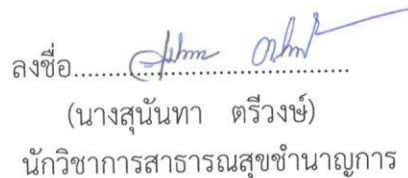 ลงชื่อ.......................................
(นางสุนันทา ตรีวงษ์)
นักวิชาการสาธารณสุขชำนาญการ